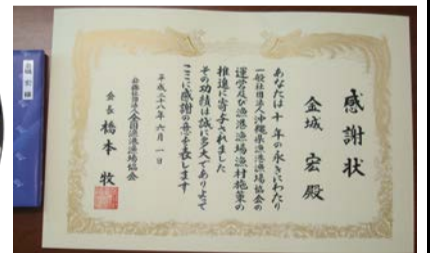 感謝状
金城 宏 殿
あなたは十年の永きにわたり
一般社団法人沖縄県漁港漁場協会の
運営及び漁港漁場漁村施策の
推進に寄与されました
その功績は誠に多大でありよって
ここに感謝の意を表します
平成二十八年六月一日
公益社団法人全国漁港漁場協会
会長 橋本 牧